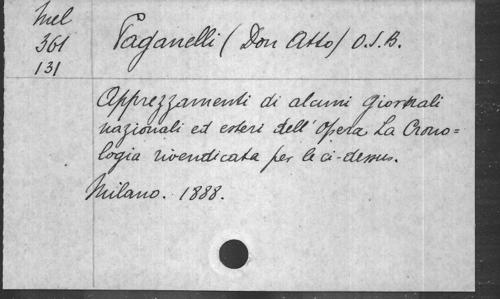 Mel
361
131
Paganelli (Don Atto) O.S.B.
Apprezzamenti di alcuni Giornali
nazionali ed esteri dell'opera La Crono=
logia rivendicata per le ci-dessus.
Milano. 1888.